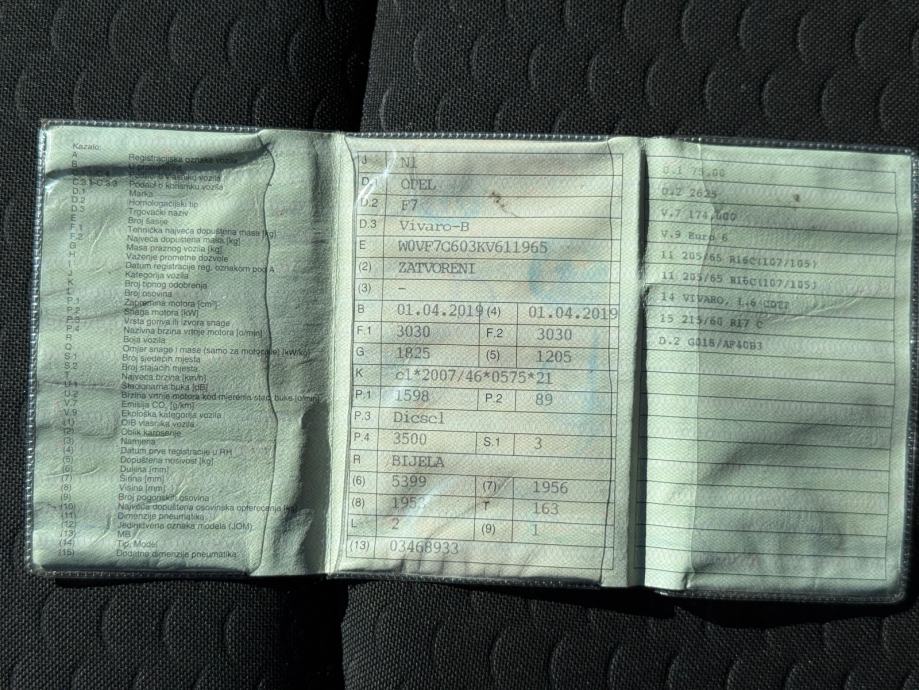 Kazalo:
A Registracijska oznaka vozila
D.1 Marka
D.2 Homologacijski tip
D.3 Trgovački naziv
E Broj šasije
F.1 Tehnička najveća dopuštena masa [kg]
F.2 Najveća dopuštena masa [kg]
G Masa praznog vozila [kg]
H Važenje prometne dozvole
I Datum registracije reg. oznakom pod A
J Kategorija vozila
K Broj tipnog odobrenja
L Broj osovina
P.1 Zapremina motora [cm³]
P.2 Snaga motora [kW]
P.3 Vrsta goriva ili izvora snage
P.4 Nazivna brzina vrtnje motora [o/min]
R Boja vozila
Q Omjer snage i mase (samo za motocikle) [kW/kg]
S.1 Broj sjedećih mjesta
S.2 Broj stajaćih mjesta
T Najveća brzina [km/h]
U.1 Stacionarna buka [dB]
U.2 Brzina vrtnje motora kod mjerenja stac. buke [o/min]
V.7 Emisija CO₂ [g/km]
V.9 Ekološka kategorija vozila
(1) OIB vlasnika vozila
(2) Oblik karoserije
(3) Namjena
(4) Datum prve registracije u RH
(5) Dopuštena nosivost [kg]
(6) Duljina [mm]
(7) Širina [mm]
(8) Visina [mm]
(9) Broj pogonskih osovina
(10) Najveće dopuštena osovinska opterećenja [kg]
(11) Dimenzije pneumatika
(12) Jedinstvena oznaka modela (JOM)
(13) MB
(14) Tip, Model
(15) Dodatne dimenzije pneumatika
J N1
D.1 OPEL
D.2 F7
D.3 Vivaro-B
E W0VF7C603KV611965
(2) ZATVORENI
(3) -
B 01.04.2019 (4) 01.04.2019
F.1 3030 F.2 3030
G 1825 (5) 1205
K e1*2007/46*0575*21
P.1 1598 P.2 89
P.3 Diesel
P.4 3500 S.1 3
R BIJELA
(6) 5399 (7) 1956
(8) T 163
L 2 (9) 1
(13) 03468933
O.1 75.00
O.2 2625
V.7 174,000
V.9 Euro 6
11 205/65 R16C(107/105)
11 205/65 R16C(107/105)
14 VIVARO, 1.6 CDTI
15 215/60 R17 C
D.2 G018/AF40B3